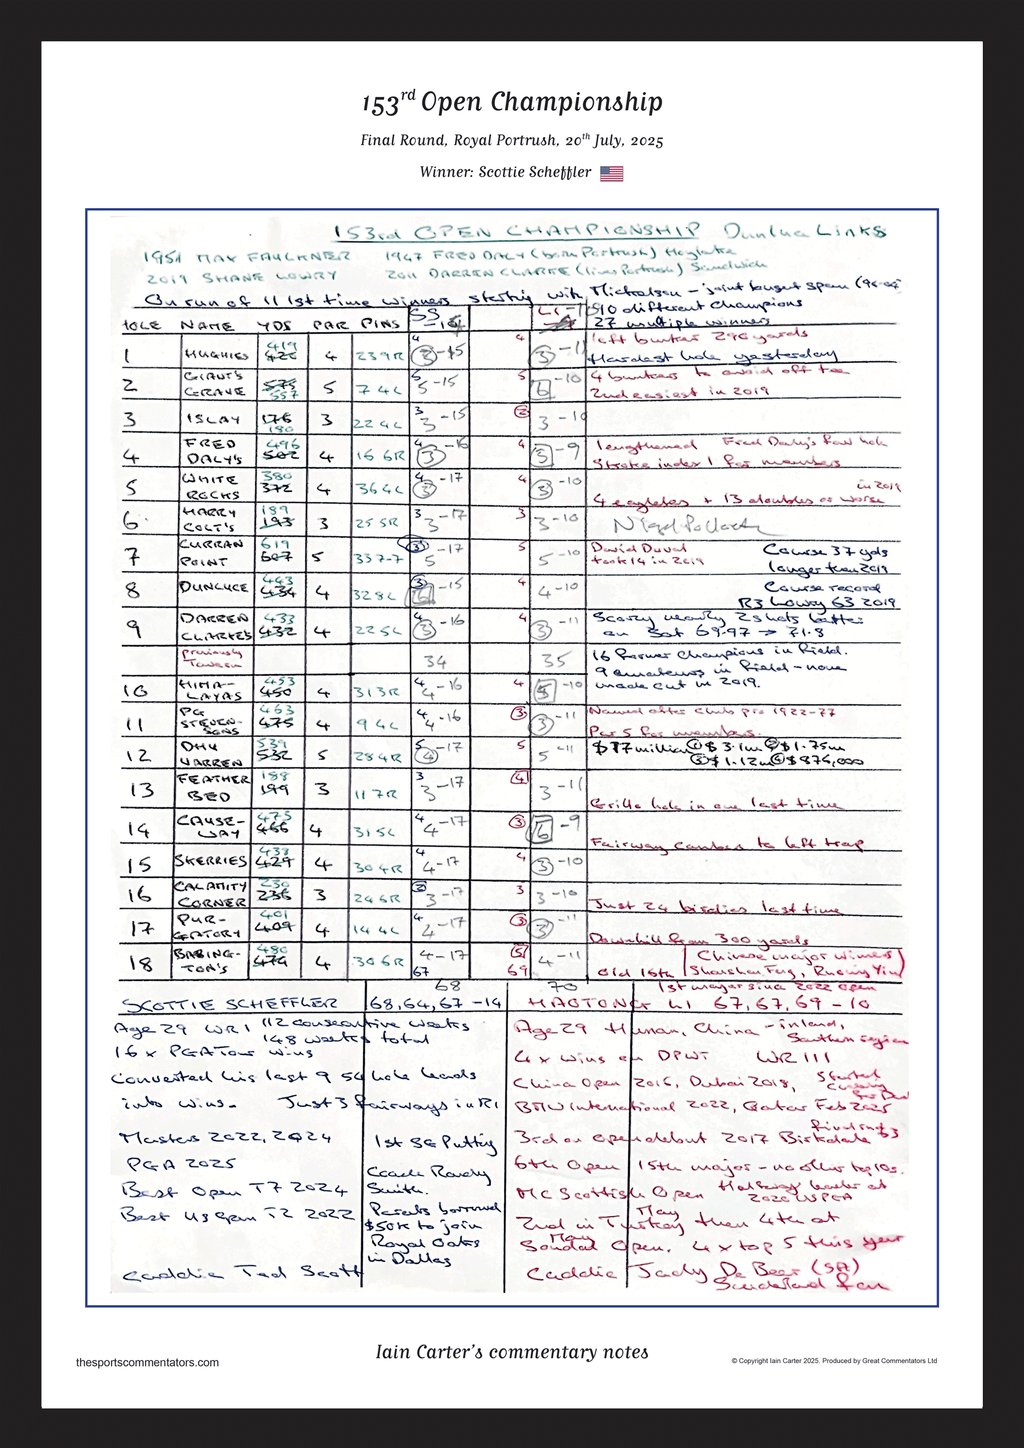 153rd Open Championship
Final Round, Royal Portrush, 20th July, 2025
Winner: Scottie Scheffler
153rd OPEN CHAMPIONSHIP Dunluce Links
1951 MAX FAULKNER 1947 FRED DALY (born Portrush) Hoylake
2019 SHANE LOWRY 2011 DARREN CLARKE (lives Portrush) Sandwich
On run of 11 1st time winners starting with Mickelson - joint longest span
10 different champions
27 multiple winners
HOLE NAME YDS PAR PINS SS
left bunker 296 yards
1 HUGHIES 419 426 4 239R 4 3 -15 4 3 -11 Hardest hole yesterday
4 bunkers to avoid off tee
2 GIANT'S GRAVE 575 557 5 74L 5 5 -15 5 6 -10 2nd easiest in 2019
3 ISLAY 176 180 3 224L 3 3 -15 2 3 -10
lengthened Fred Daly's fav hole
4 FRED DALY'S 496 502 4 166R 4 3 -16 4 3 -9 Stroke index 1 for members
in 2019
5 WHITE ROCKS 380 372 4 364L 4 3 -17 4 3 -10 4 eagles + 13 doubles or worse
6 HARRY COLT'S 189 193 3 255R 3 3 -17 3 3 -10
David Duval Course 37 yds
7 CURRAN POINT 619 607 5 3 5 -17 5 5 -10 took 14 in 2019 longer than 2019
Course record
8 DUNLUCE 443 434 4 328L 3 6 -15 4 4 -10 R3 Lowry 63 2019
Scoring nearly 2 shots better
9 DARREN CLARKE'S 433 432 4 225L 4 3 -16 4 3 -11 on Sat 69.97 → 71.8
16 former champions in field.
Previously Tavern 34 35 9 amateurs in field - none
made cut in 2019.
10 HIMALAYAS 453 450 4 313R 4 4 -16 4 5 -10
Named after club pro 1922-77
11 PG STEVENSONS 463 475 4 94L 4 4 -16 3 3 -11 Par 5 for members.
$17 million ① $3.1m ② $1.75m
12 DHU VARREN 539 532 5 284R 5 4 -17 5 5 -11 ③ $1.12m ④ $876,000
13 FEATHER BED 188 199 3 117R 3 3 -17 4 3 -11 Grillo hole in one last time
14 CAUSEWAY 473 466 4 315L 4 4 -17 3 6 -9 Fairway cambers to left trap
15 SKERRIES 433 429 4 304R 4 4 -17 4 3 -10
16 CALAMITY CORNER 230 236 3 246R 2 3 -17 3 3 -10 Just 24 birdies last time
17 PURGATORY 401 409 4 144L 4 4 -17 3 3 -11 Downhill from 300 yards
Chinese major winners
18 BABINGTON'S 480 474 4 306R 4 -17 67 5 69 4 -11 Old 16th Shanshan Feng, Ruoning Yin
68 70 1st major since 2022 Open
SCOTTIE SCHEFFLER 68, 64, 67 -14 HAOTONG LI 67, 67, 69 -10
Age 29 WR1 112 consecutive weeks
148 weeks total
16 x PGA Tour wins
Converted his last 9 54 hole leads
into wins. Just 3 fairways in R1
Masters 2022, 2024 1st SG Putting
PGA 2025 Coach Randy Smith.
Best Open T7 2024
Best US Open T2 2022 Parents borrowed
$50k to join
Royal Oaks
in Dallas
Caddie Ted Scott
Age 29 Hunan, China - inland,
Southern region
4 x wins on DPWT WR 111
China Open 2016, Dubai 2018, Started
BMW International 2022, Qatar Feb 2025
Final rnd 63
3rd on Open debut 2017 Birkdale
6th Open 15th major - no other top 10s.
MC Scottish Open Halfway leader at
2020 USPGA
2nd in Turkey May then 4th at
Soudal Open. May 4 x top 5 this year
Caddie Jady De Beer (SA)
Sunderland fan
Iain Carter's commentary notes
thesportscommentators.com
© Copyright Iain Carter 2025. Produced by Great Commentators Ltd